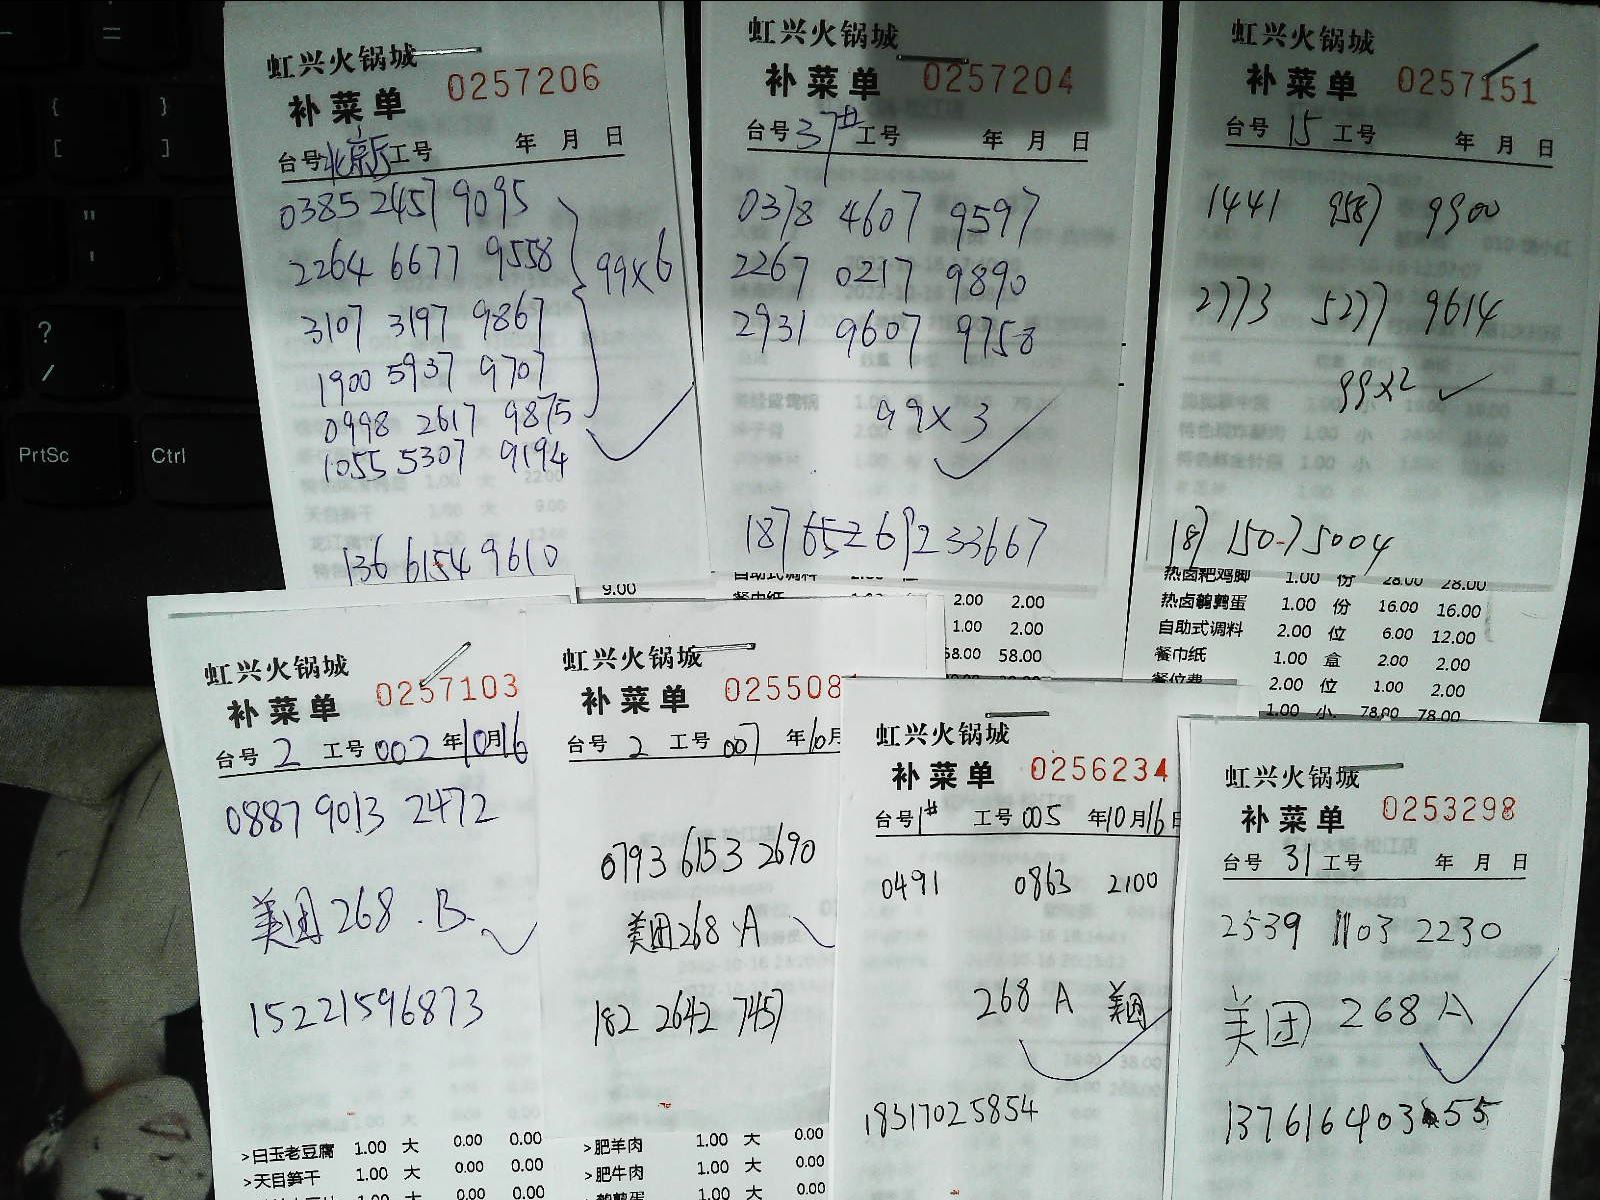 虹兴火锅城
补菜单 0257206
台号 北京厅 工号 年 月 日
0385 2457 9095
2264 6677 9558
3107 3197 9867
99×6
1900 5937 9707
0998 2617 9875
1055 5307 9194
136 6154 9610
虹兴火锅城
补菜单 0257204
台号 37# 工号 年 月 日
0378 4607 9597
2267 0217 9890
2931 9607 9758
99×3
187 652 69233667
自助式调料
餐巾纸 1.00 2.00 2.00
1.00 2.00
58.00 58.00
9.00
虹兴火锅城
补菜单 0257151
台号 15 工号 年 月 日
1441 9587 9900
2773 5277 9614
99×2
187 150-75004
热卤粑鸡脚 1.00 份 28.00 28.00
热卤鹌鹑蛋 1.00 份 16.00 16.00
自助式调料 2.00 位 6.00 12.00
餐巾纸 1.00 盒 2.00 2.00
餐位费 2.00 位 1.00 2.00
1.00 小 78.00 78.00
虹兴火锅城
补菜单 0257103
台号 2 工号 002 年 10月16
0887 9013 2472
美团268.B.
15221596873
>白玉老豆腐 1.00 大 0.00 0.00
>天目笋干 1.00 大 0.00 0.00
1.00 大 0.00 0.00
虹兴火锅城
补菜单 025508
台号 2 工号 007 年10月
0793 6153 2690
美团268.A
182 2642 7457
>肥羊肉 1.00 大 0.00
>肥牛肉 1.00 大 0.00
鹌鹑蛋 1.00 大 0.00
虹兴火锅城
补菜单 0256234
台号 1# 工号 005 年10月16日
0491 0863 2100
268 A 美团
18317025854
虹兴火锅城
补菜单 0253298
台号 31 工号 年 月 日
2539 1103 2230
美团 268 A
137616403 55